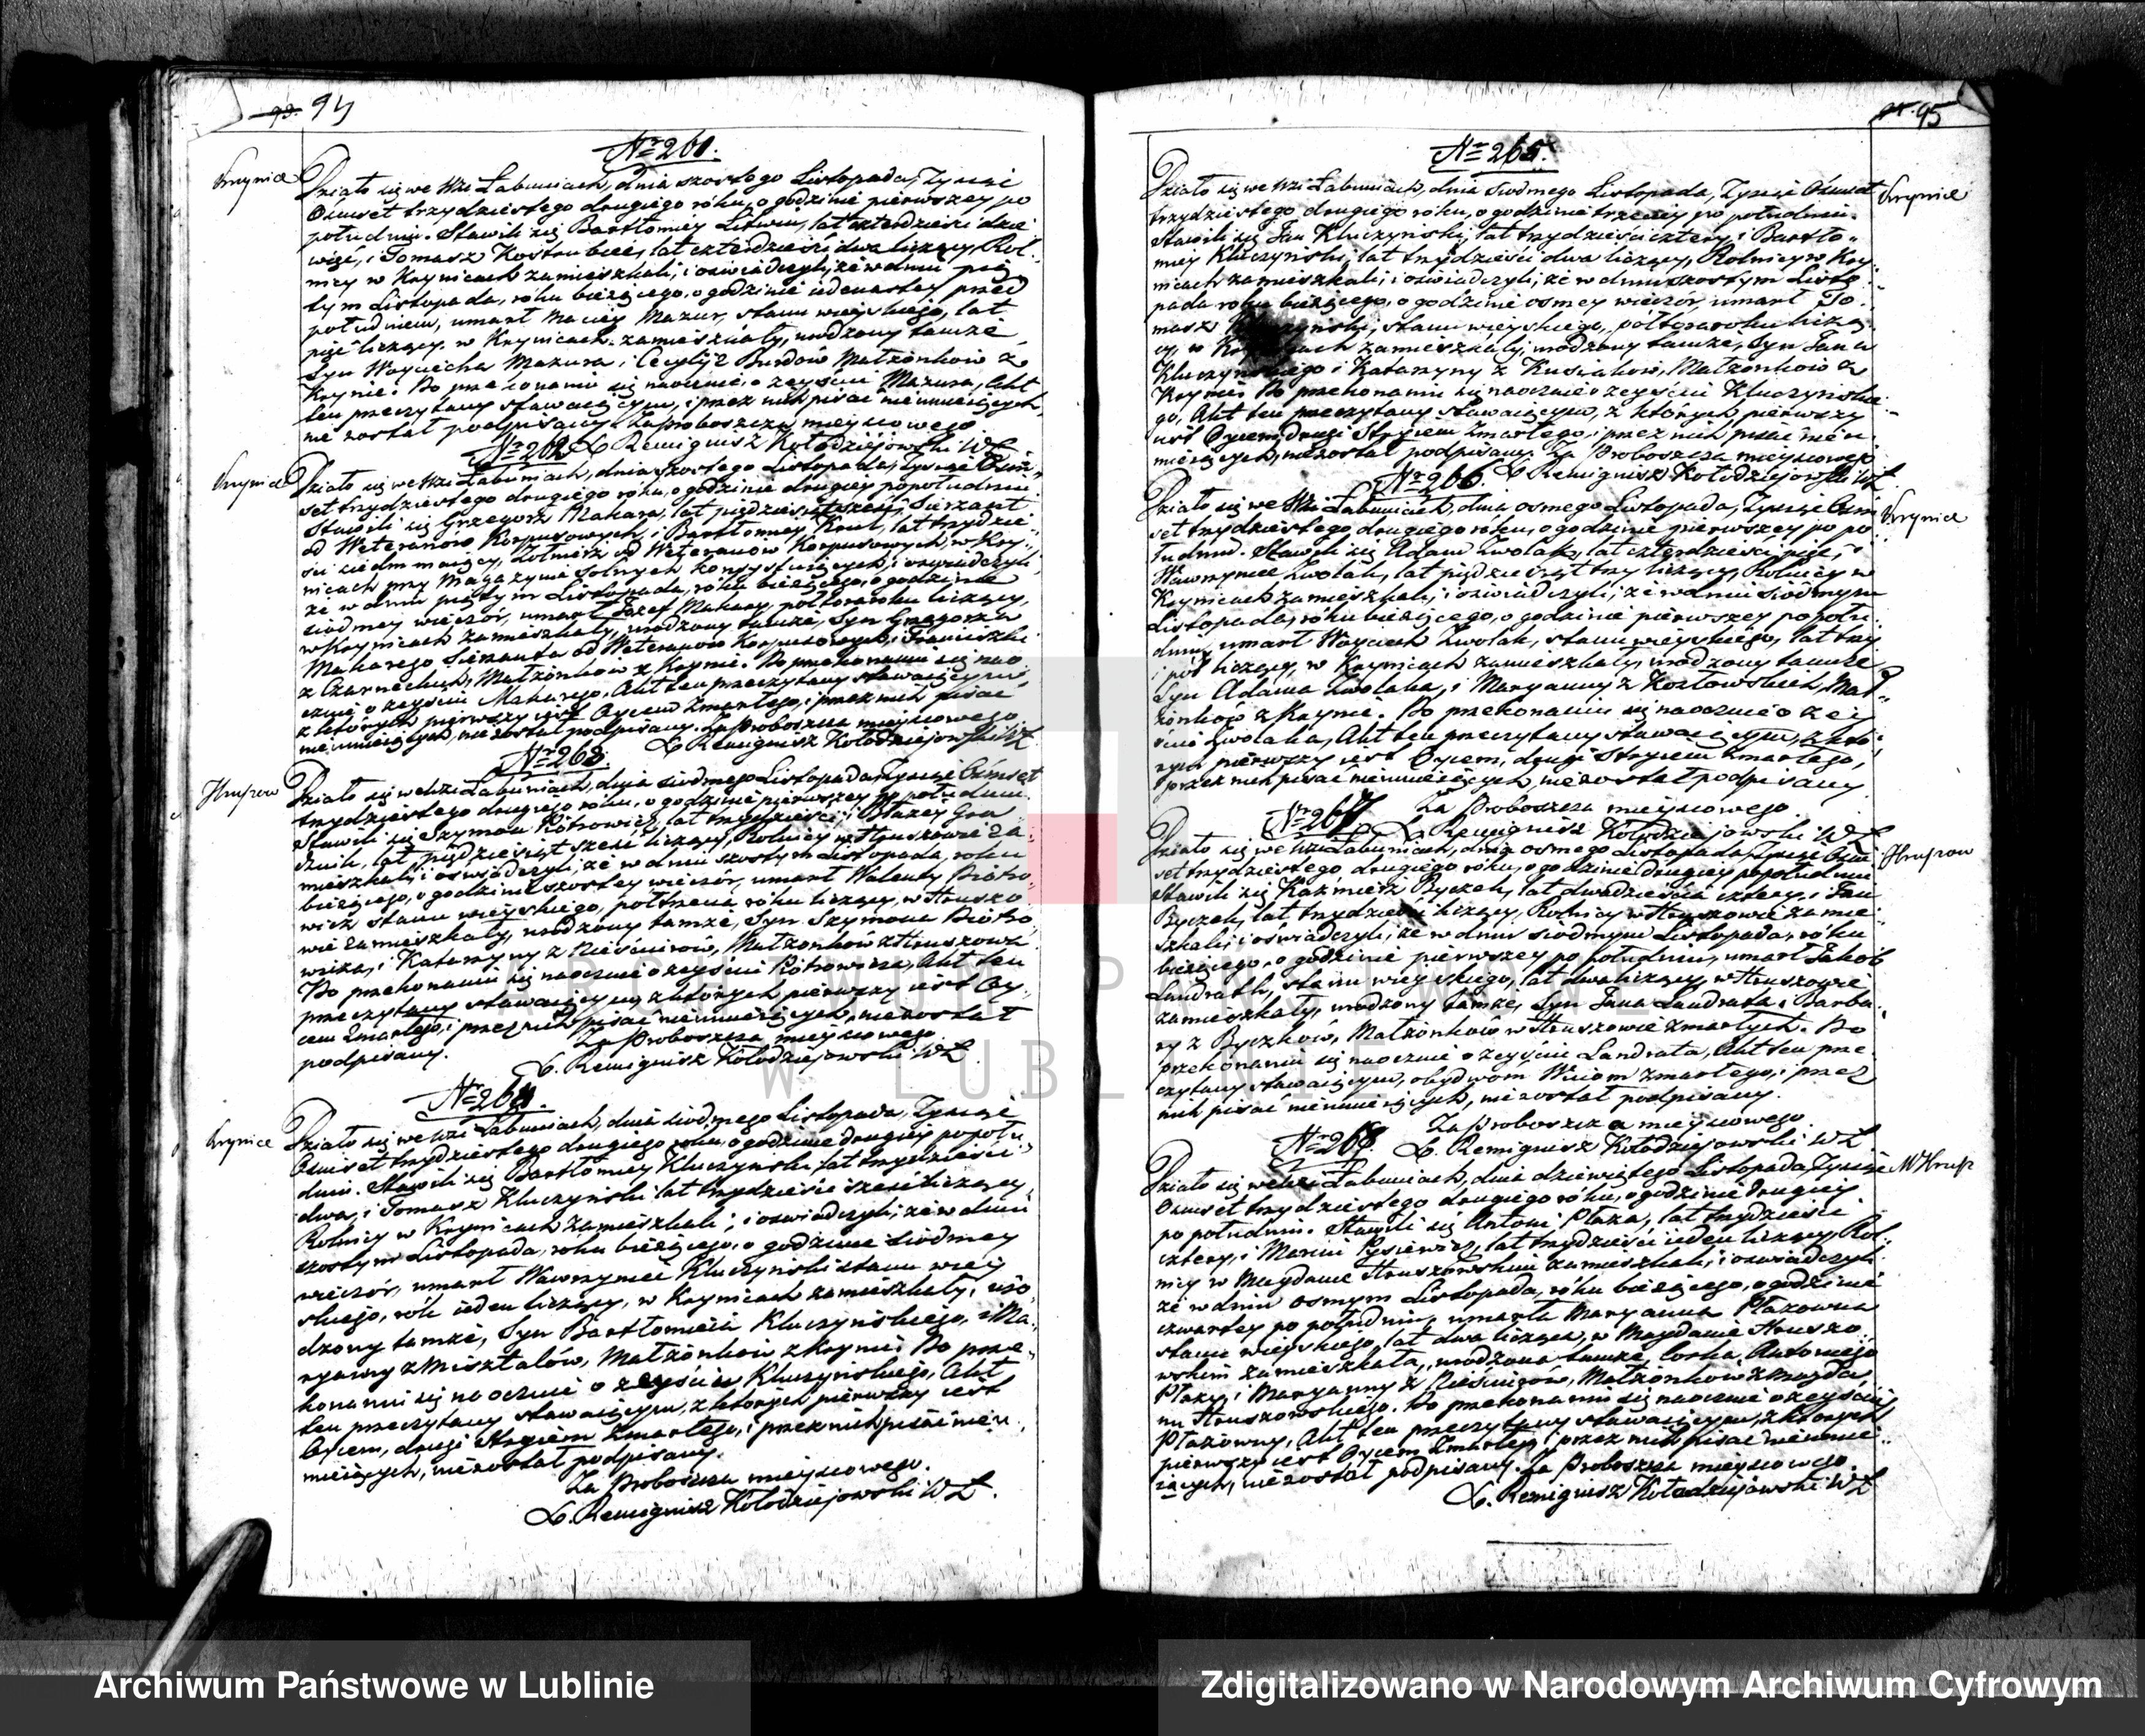 93. 94
Nr 261.
Krynice
Działo się we Wsi Łabuniach, dnia szóstego Listopada, Tysiąc
Ośmset trzydziestego drugiego roku, o godzinie pierwszey po
południu. Stawili się Bartłomiey Litwin, lat czterdzieści dzie
więć, i Tomasz Kostrubiec, lat czterdzieści dwa liczący, Rol„
nicy w Krynicach zamieszkali, i oświadczyli, że w dniu pią
tym Listopada, roku bieżącego, o godzinie iedenastey przed
południem, umarł Maciey Mazur, stanu wieyskiego, lat
pięć liczący, w Krynicach zamieszkały, urodzony tamże
Syn Woyciecha Mazura i Cecylij z Burdów Małżonków z
Krynic. Po przekonaniu się naocznie o zeyściu Mazura, Akt
ten przeczytany stawaiącym, i przez nich pisać nieumieiących,
nie został podpisany. Za Proboszcza mieyscowego
Nr 262 X. Remigiusz Kołodziejowski W Ł
Krynice
Działo się we Wsi Łabuniach, dnia szóstego Listopada, Tysiąc Ośm„
set trzydziestego drugiego roku, o godzinie drugiey popołudniu.
Stawili się Grzegorz Makara, lat pięćdziesiąt sześć, Sierżant
od Weteranów Korpusowych, i Bartłomiey Krul, lat trzydzie„
ści siedm maiący, Żołnierz od Weteranów Korpusowych, w Kry„
nicach przy Magazynie Solnych konsystuiących, i oświadczyli
że w dniu piątym Listopada, roku bieżącego, o godzinie
siódmey wieczór, umarł Józef Makary, półtora roku liczący,
w Krynicach zamieszkały, urodzony tamże, Syn Grzegorza
Makarego Sierżanta od Weteranów Korpusowych, i Franciszki
z Czarneckich, Małżonków z Krynic. Po przekonaniu się nao
cznie o zeyściu Makarego, Akt ten przeczytany stawaiącym
z których pierwszy iest Oycem Zmarłego, i przez nich pisać
nieumieiących, nie został podpisany. Za Proboszcza mieyscowego
Nr 263. X. Remigiusz Kołodziejowski W Ł
Hruszow
Działo się we Wsi Łabuniach, dnia siódmego Listopada, Tysiąc Ośmset
trzydziestego drugiego roku, o godzinie pierwszey po południu.
Stawili się Szymon Piotrowicz, lat trzydzieści, i Błażey Gra„
dziuk, lat pięćdziesiąt sześć liczący, Rolnicy w Hruszowie za„
mieszkali, i oświadczyli, że w dniu szóstym Listopada, roku
bieżącego, o godzinie szóstey wieczór, umarł Walenty Piotro„
wicz stanu wieyskiego, półtrzecia roku liczący, w Hruszo„
wie zamieszkały, urodzony tamże, Syn Szymona Piotro„
wicza, i Katarzyny z Pieściurów, Małżonków z Hruszowa
Po przekonaniu się naocznie o zeyściu Piotrowicza, Akt ten
przeczytany stawaiącym, z których pierwszy iest Oy„
cem Zmarłego, i przez nich pisać nieumieiących, nie został
podpisany. Za Proboszcza mieyscowego
X. Remigiusz Kołodziejowski W Ł.
Nr 264.
Krynice
Działo się we Wsi Łabuniach, dnia siódmego Listopada, Tysiąc
Ośmset trzydziestego drugiego roku, o godzinie drugiey popołu„
dniu. Stawili się Bartłomiey Kluczyński lat trzydzieści
dwa, i Tomasz Kluczyński lat trzydzieście sześć liczący,
Rolnicy w Krynicach zamieszkali, i oświadczyli, że w dniu
szóstym Listopada, roku bieżącego, o godzinie siódmey
wieczór, umarł Wawrzyniec Kluczyński stanu wiey
skiego, rok ieden liczący, w Krynicach zamieszkały, uro„
dzony tamże, Syn Bartłomieia Kluczyńskiego, i Ma„
ryanny z Misztalów, Małżonków z Krynic. Po prze„
konaniu się naocznie o zeyściu Kluczyńskiego, Akt
ten przeczytany stawaiącym, z których pierwszy iest
Oycem, drugi Stryiem Zmarłego, i przez nich pisać nieu„
mieiących, nie został podpisany.
Za Proboszcza mieyscowego.
X. Remigiusz Kołodziejowski W Ł.
95
Nr 265.
Krynice
Działo się we Wsi Łabuniach, dnia siódmego Listopada, Tysiąc Ośmset
trzydziestego drugiego roku, o godzinie trzeciey po południu.
Stawili się Jan Kluczyński, lat trzydzieści cztery, i Bartło„
miey Kluczyński, lat trzydzieści dwa liczący, Rolnicy w Kry„
nicach zamieszkali, i oświadczyli, że w dniu szóstym Listo„
pada roku bieżącego, o godzinie ósmey wieczór, umarł To„
masz Kluczyński, stanu wieyskiego, półtora roku liczą„
cy, w Krynicach zamieszkały, urodzony tamże, Syn Jana
Kluczyńskiego i Katarzyny z Kusiaków, Małżonków z
Krynic. Po przekonaniu się naocznie o zeyściu Kluczyńskie„
go, Akt ten przeczytany stawaiącym, z których pierwszy
iest Oycem, drugi Stryiem Zmarłego, i przez nich pisać nieu„
mieiących, nie został podpisany. Za Proboszcza mieyscowego
Nr 266. X Remigiusz Kołodziejowski W Ł
Krynice
Działo się we Wsi Łabuniach, dnia ósmego Listopada, Tysiąc Ośm
set trzydziestego drugiego roku, o godzinie pierwszey po po
łudniu. Stawili się Adam Zwolak, lat czterdzieści pięć, i
Wawrzyniec Zwolak, lat pięćdziesiąt trzy liczący, Rolnicy w
Krynicach zamieszkali, i oświadczyli, że w dniu siódmym
Listopada, roku bieżącego, o godzinie pierwszey popołu„
dniu, umarł Woyciech Zwolak, stanu wieyskiego, lat trzy
i pół liczący, w Krynicach zamieszkały, urodzony tamże
Syn Adama Zwolaka, i Maryanny z Kozłowskich, Mał„
żonków z Krynic. Po przekonaniu się naocznie o zey
ściu Zwolaka, Akt ten przeczytany stawaiącym, z któ„
rych pierwszy iest Oycem, drugi Stryiem Zmarłego,
i przez nich pisać nieumieiących, nie został podpisany
Za Proboszcza mieyscowego.
Nr 267 X. Remigiusz Kołodziejowski W Ł
Hruszow
Działo się we Wsi Łabuniach, dnia ósmego Listopada, Tysiąc Ośm
set trzydziestego drugiego roku, o godzinie drugiey popołudniu
Stawili się Kazimierz Byczek, lat dwadzieścia cztery, i Jan
Byczek, lat trzydzieści liczący, Rolnicy w Hruszowie zamie„
szkali, i oświadczyli, że w dniu siódmym Listopada, roku
bieżącego, o godzinie pierwszey po południu, umarł Jakób
Landrath, stanu wieyskiego, lat dwa liczący, w Hruszowie
zamieszkały, urodzony tamże, Syn Jana Landrata i Barba„
ry z Byczków, Małżonków w Hruszowie Zmarłych. Po
przekonaniu się naocznie o zeyściu Landrata, Akt ten prze
czytany stawaiącym, obydwom Wuiom Zmarłego, i przez
nich pisać nieumieiących, nie został podpisany.
Za Proboszcza mieyscowego.
Nr 268. X. Remigiusz Kołodziejowski W Ł
M Hrusz
Działo się we Wsi Łabuniach, dnia dziewiątego Listopada, Tysiąc
Ośmset trzydziestego drugiego roku, o godzinie drugiey
po południu. Stawili się Antoni Płaza, lat trzydzieści
cztery, i Marcin Pysiewicz, lat trzydzieści ieden liczący, Rol„
nicy w Maydanie Hruszowskim zamieszkali, i oświadczyli
że w dniu ósmym Listopada, roku bieżącego, o godzinie
czwartey po południu, umarła Maryanna Płazowna
stanu wieyskiego, lat dwa licząca, w Maydanie Hruszo„
wskim zamieszkała, urodzona tamże, Córka Antoniego
Płazy, i Maryanny z Pieściurów, Małżonków z Mayda„
nu Hruszowskiego. Po przekonaniu się naocznie o zeyściu
Płazówny, Akt ten przeczytany stawaiącym, z których
pierwszy iest Oycem Zmarłey, i przez nich pisać nieumie„
iących, nie został podpisany. Za Proboszcza mieyscowego.
X. Remigiusz Kołodziejowski W Ł
ARCHIWUM PAŃSTWOWE
W LUBLINIE
Archiwum Państwowe w Lublinie
Zdigitalizowano w Narodowym Archiwum Cyfrowym